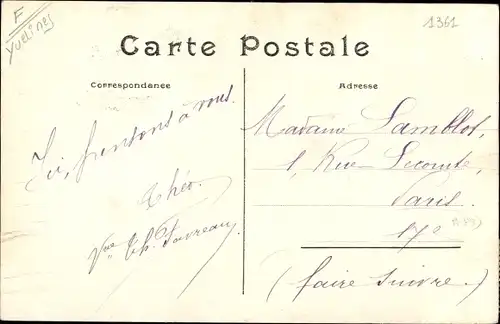 F
Yvelines
1361
Carte Postale
Correspondance
Adresse
Ici, pensons à vous.
Théo.
Vve Th. Favreau,
Madame Lamblot,
1, Rue Lecomte,
Paris
17e
(faire suivre.)